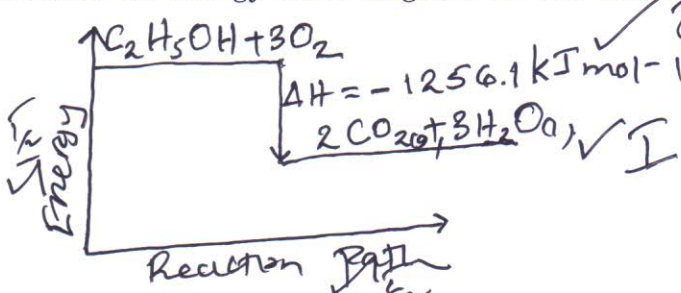 C₂H₅OH + 3O₂
ΔH = -1256.1 kJ mol-1
2CO₂(g) + 3H₂O(l)
Energy
Reaction Path